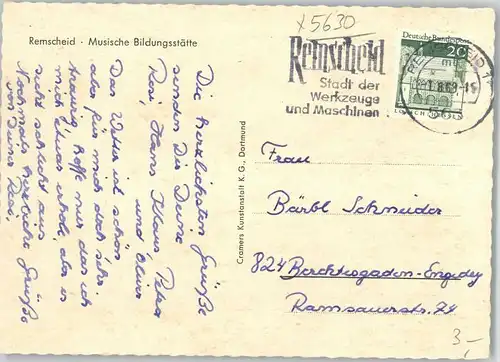 x 5630
Remscheid · Musische Bildungsstätte
Deutsche Bundespost
20
LORSCH HESSEN
Remscheid
Stadt der
Werkzeuge
und Maschinen
Die herzlichsten Grüße
senden Dir Deine
Resi, Hans Klaus Petra
und Oliver
Das Wetter ist schön
aber für mich doch sehr
traurig, hoffe nur das ich
mich etwas erhole, aber es
sieht schlecht aus
Nochmals herzliche Grüße
von Deiner Resi.
Cramers Kunstanstalt K. G., Dortmund
Frau
Bärbl Schneider
824 Berchtesgaden-Engedey
Ramsauerstr.
3,-